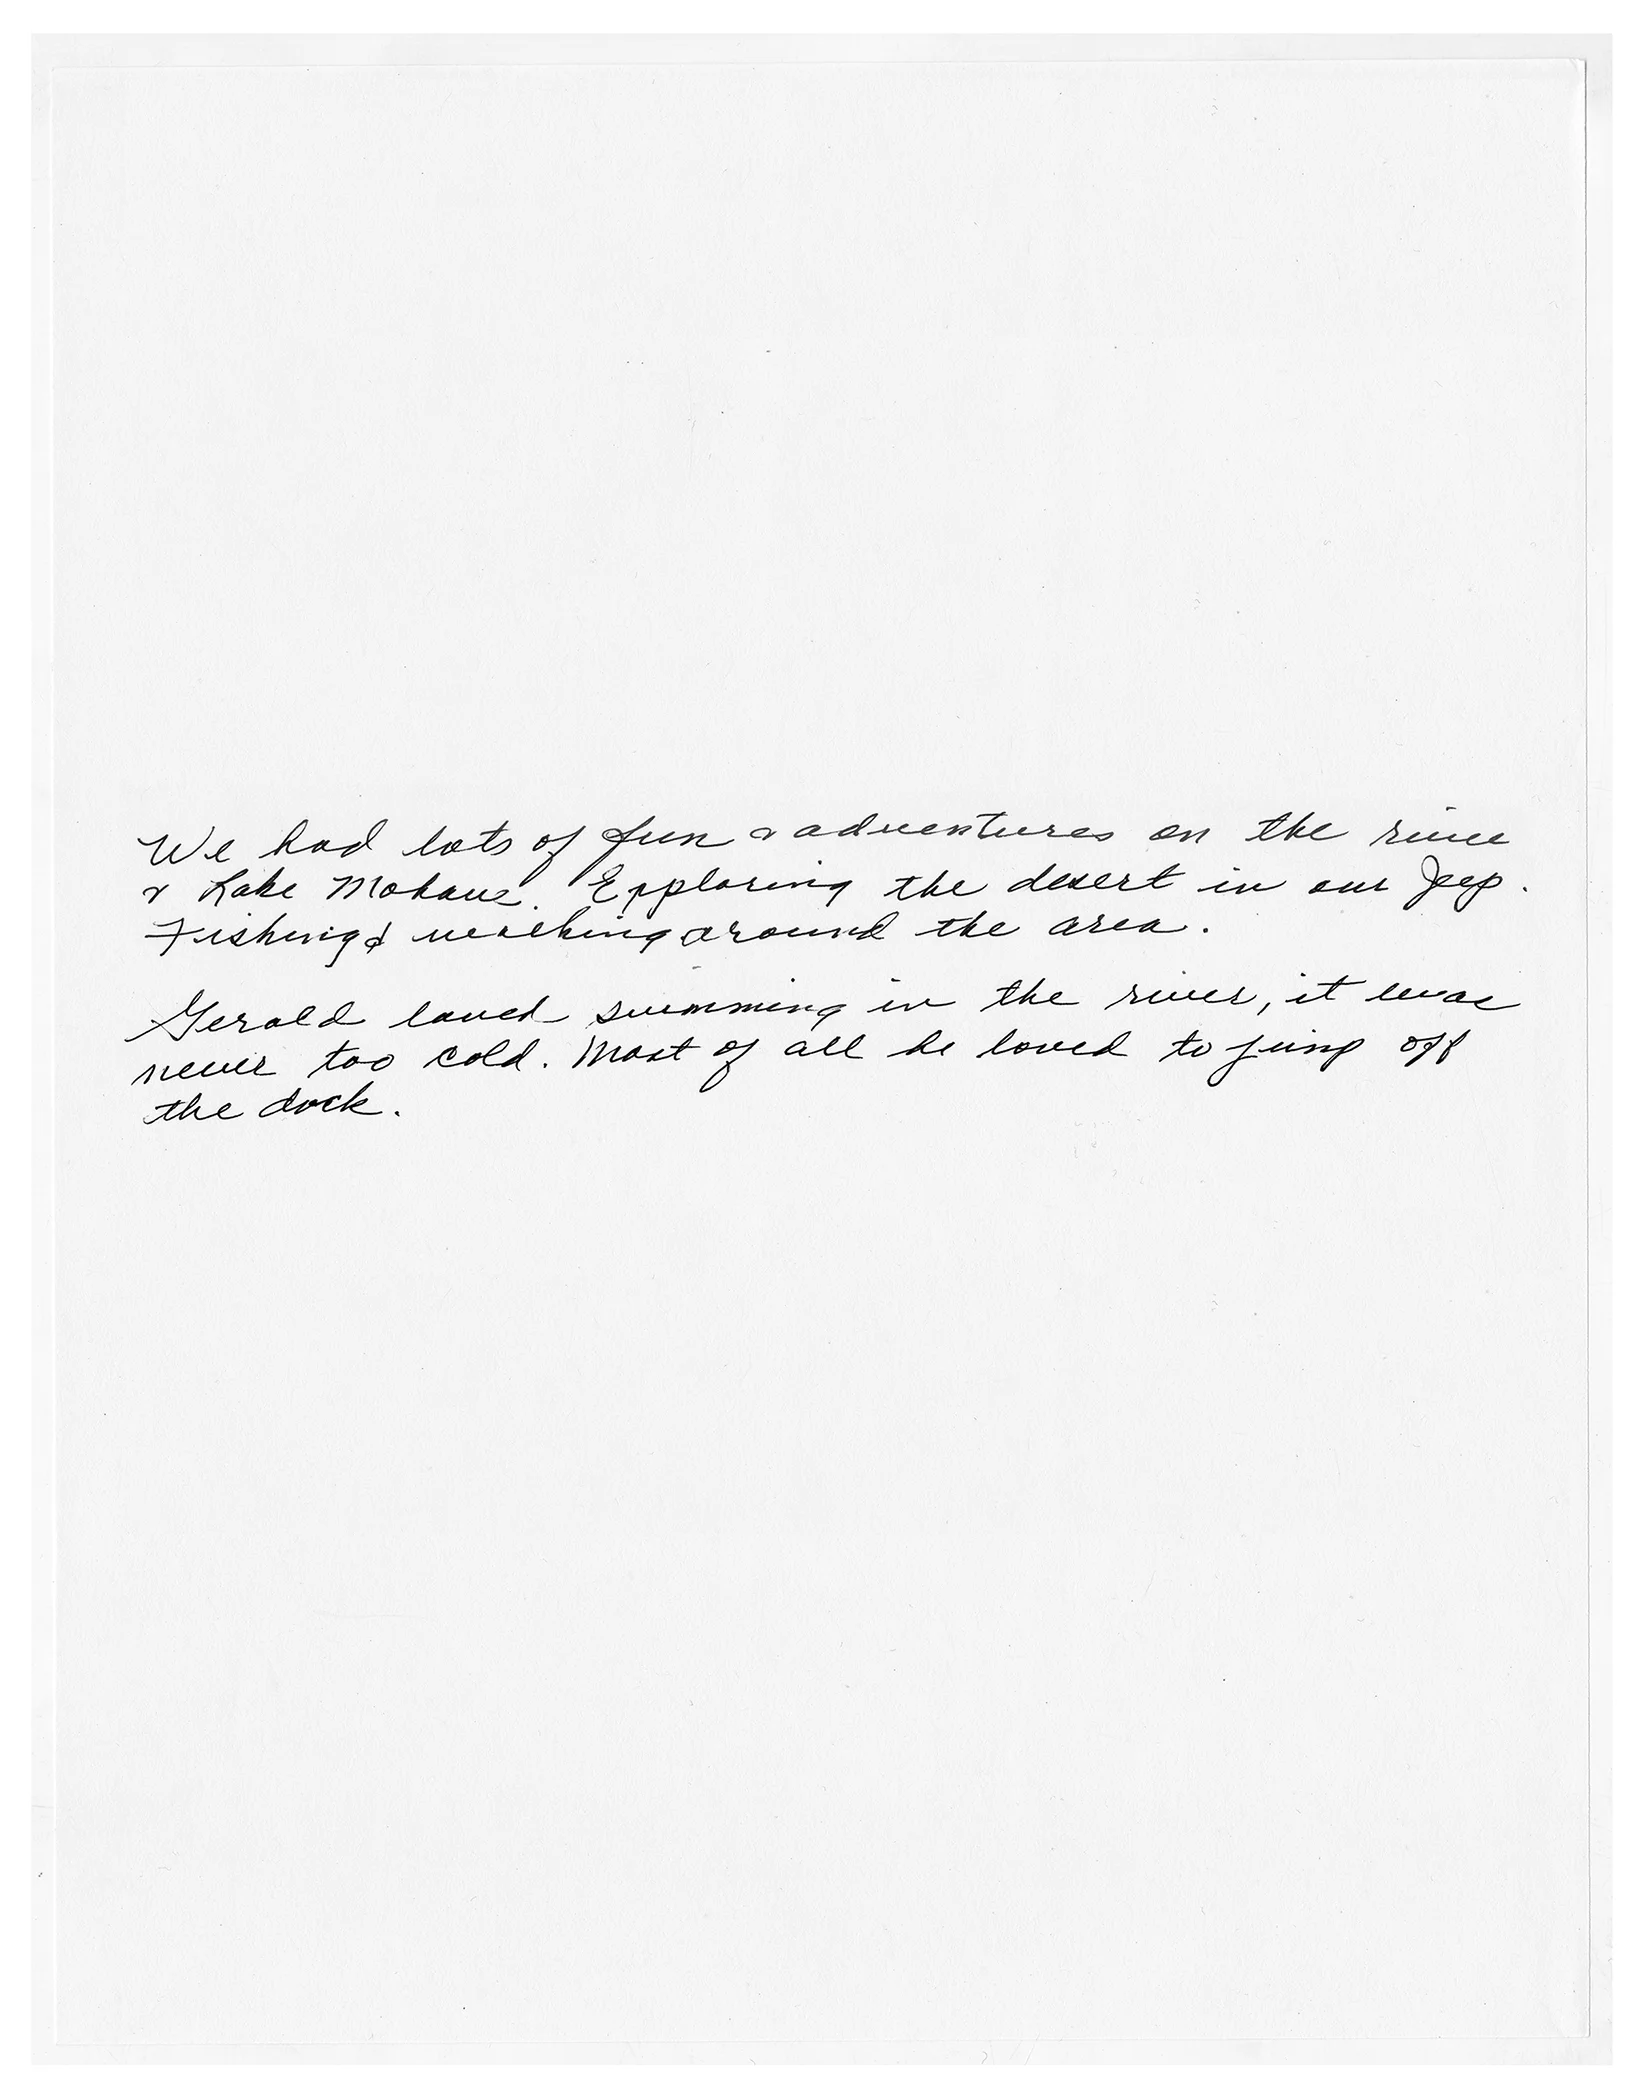 We had lots of fun & adventures on the river
& Lake Mohave. Exploring the desert in our Jeep.
Fishing & walking around the area.
Gerald loved swimming in the river, it was
never too cold. Most of all he loved to jump off
the dock.